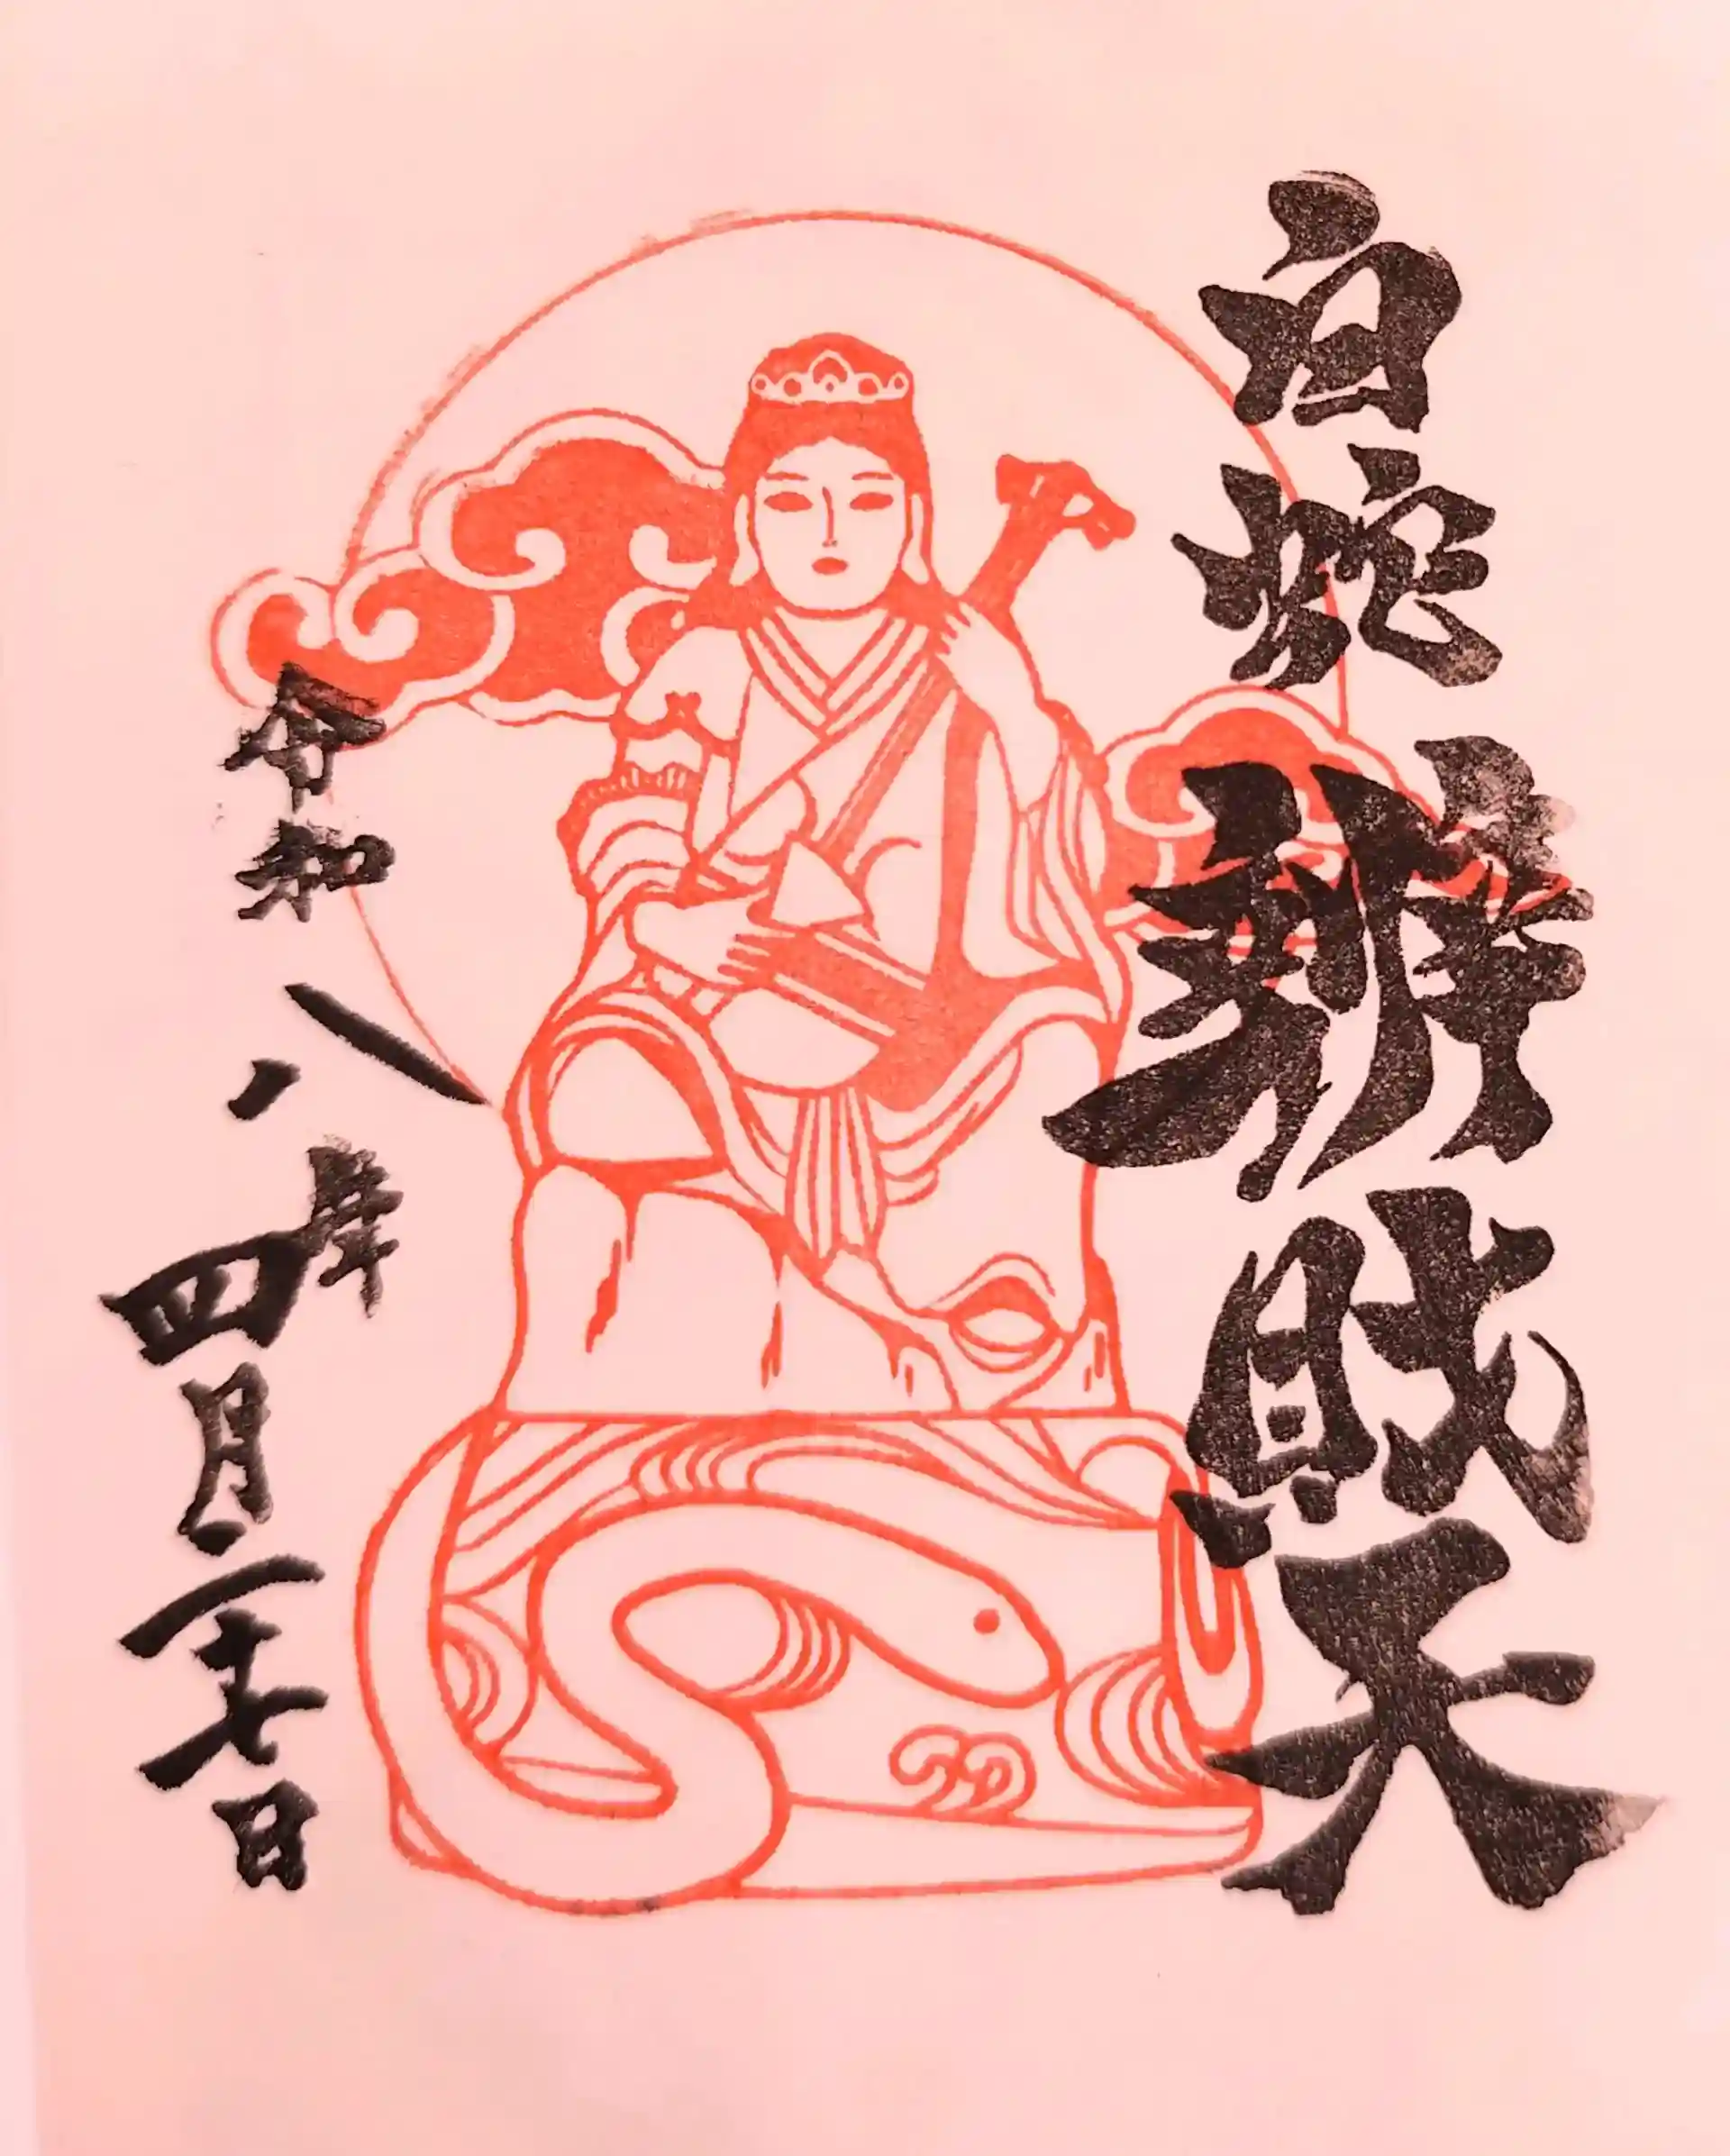 白蛇辨財天
令和八年四月二十七日